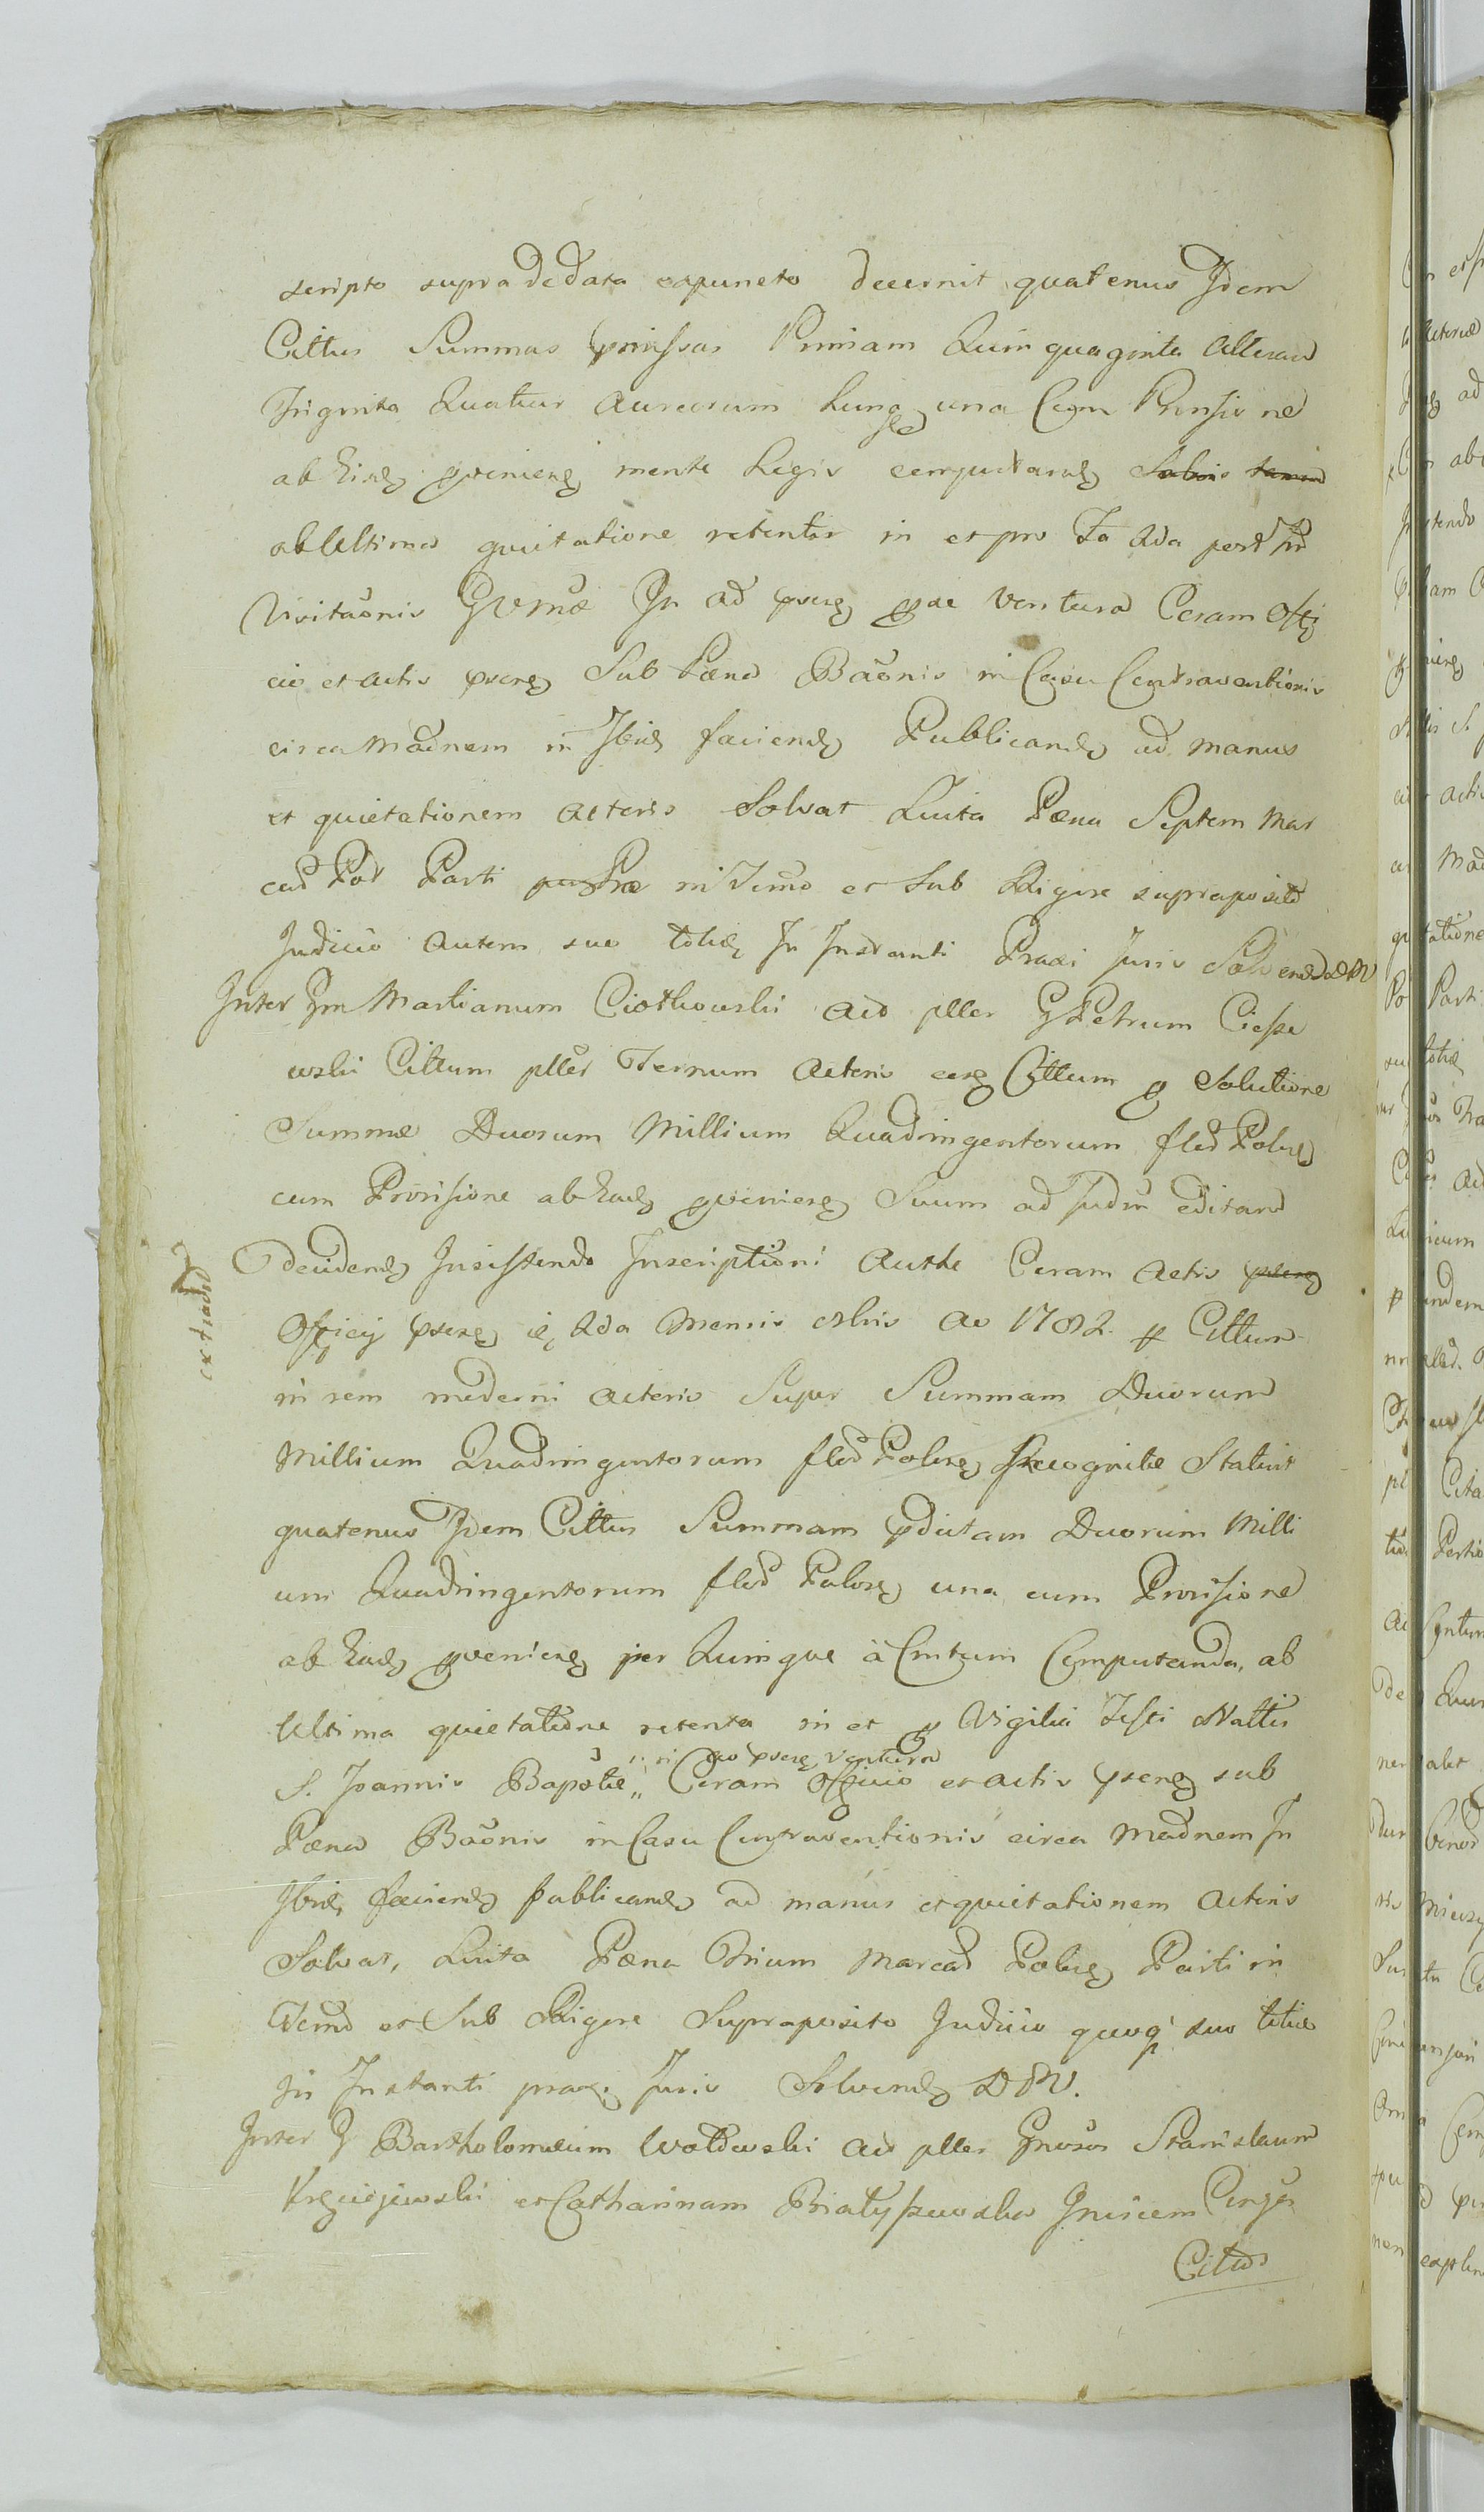 scripto supra de data expuncto decernit quatenus Idem
Cittus Summas pmissas Primam Quinquaginta Alteram
Triginta Quatuor Aureorum hung una Cum Provisione
ab Eisd pvenien mente Legis computand Salvis tamen
ab Ultima quietatione retentis in et pro Fa 2da post
Visitaõnis GVMæ In ad psens pae Ventura Coram Offi
cio et Actis psen Sub Pæna Baõnis in Casu Contraventionis
circa Madnem in Ibid faciend Publicand ad manus
et quietationem Actoris Solvat Luita Pæna Septem Mar
card Pol Parti in Termo et Sub Rigore supraposito
Judicio autem suo totid In Instanti Praxi Juris Solvendæ DM
Inter Gm Martianum Ciotkowski Act pller G Petrum Ciesze
wski Cittum pller Ternum Actoris cers Cittum p Solutione
Summæ Duorum Millium Quadringentorum flod Polon
cum Provisione ab Ead pvenien Suum ad Judm editam
Decidend Insistendo Inscriptioni Authe Coram Actis psen
Officij psen 2da Mensis 8bris Ao 1782 p Cittum
in rem moderni Actoris Super Summam Duorum
Millium Quadringentorum flod Polon Recognitæ Statuit
quatenus Idem Cittus Summam pdictam Duorum Milli
um Quadringentorum flod Polon una cum Provisione
ab Ead pvenien per Quinque à Centum Computanda, ab
Ultima quietatione retenta in et p Vigilia Festi Nattis
in ad psens ventura
S. Joannis Baptæ „ Coram Officio et Actis psen sub
Pæna Baõnis in Casu Contraventionis circa Madnem In
Ibid faciend publicand ad manus et quietationem Actoris
Solvat, Luita Pæna Trium Marcad Polon Parti in
Termo et Sub Rigore Supraposito Judicio quoq suo totid
In Instanti prax Juris Solvend DM.
Inter G Bartholomæum Wołowski Act pller Gnosos Stanislaum
et Catharinam Białyszewska Invicem Conjges
Cittos
extrad